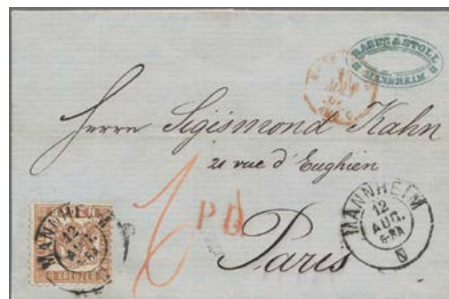 RABUS & STOLL
MANNHEIM
Herrn Sigismond Kahn
21 rue d'Enghien
PD
Paris
MANNHEIM
12
AUG.
N
MANNHEIM
12
KREUZER